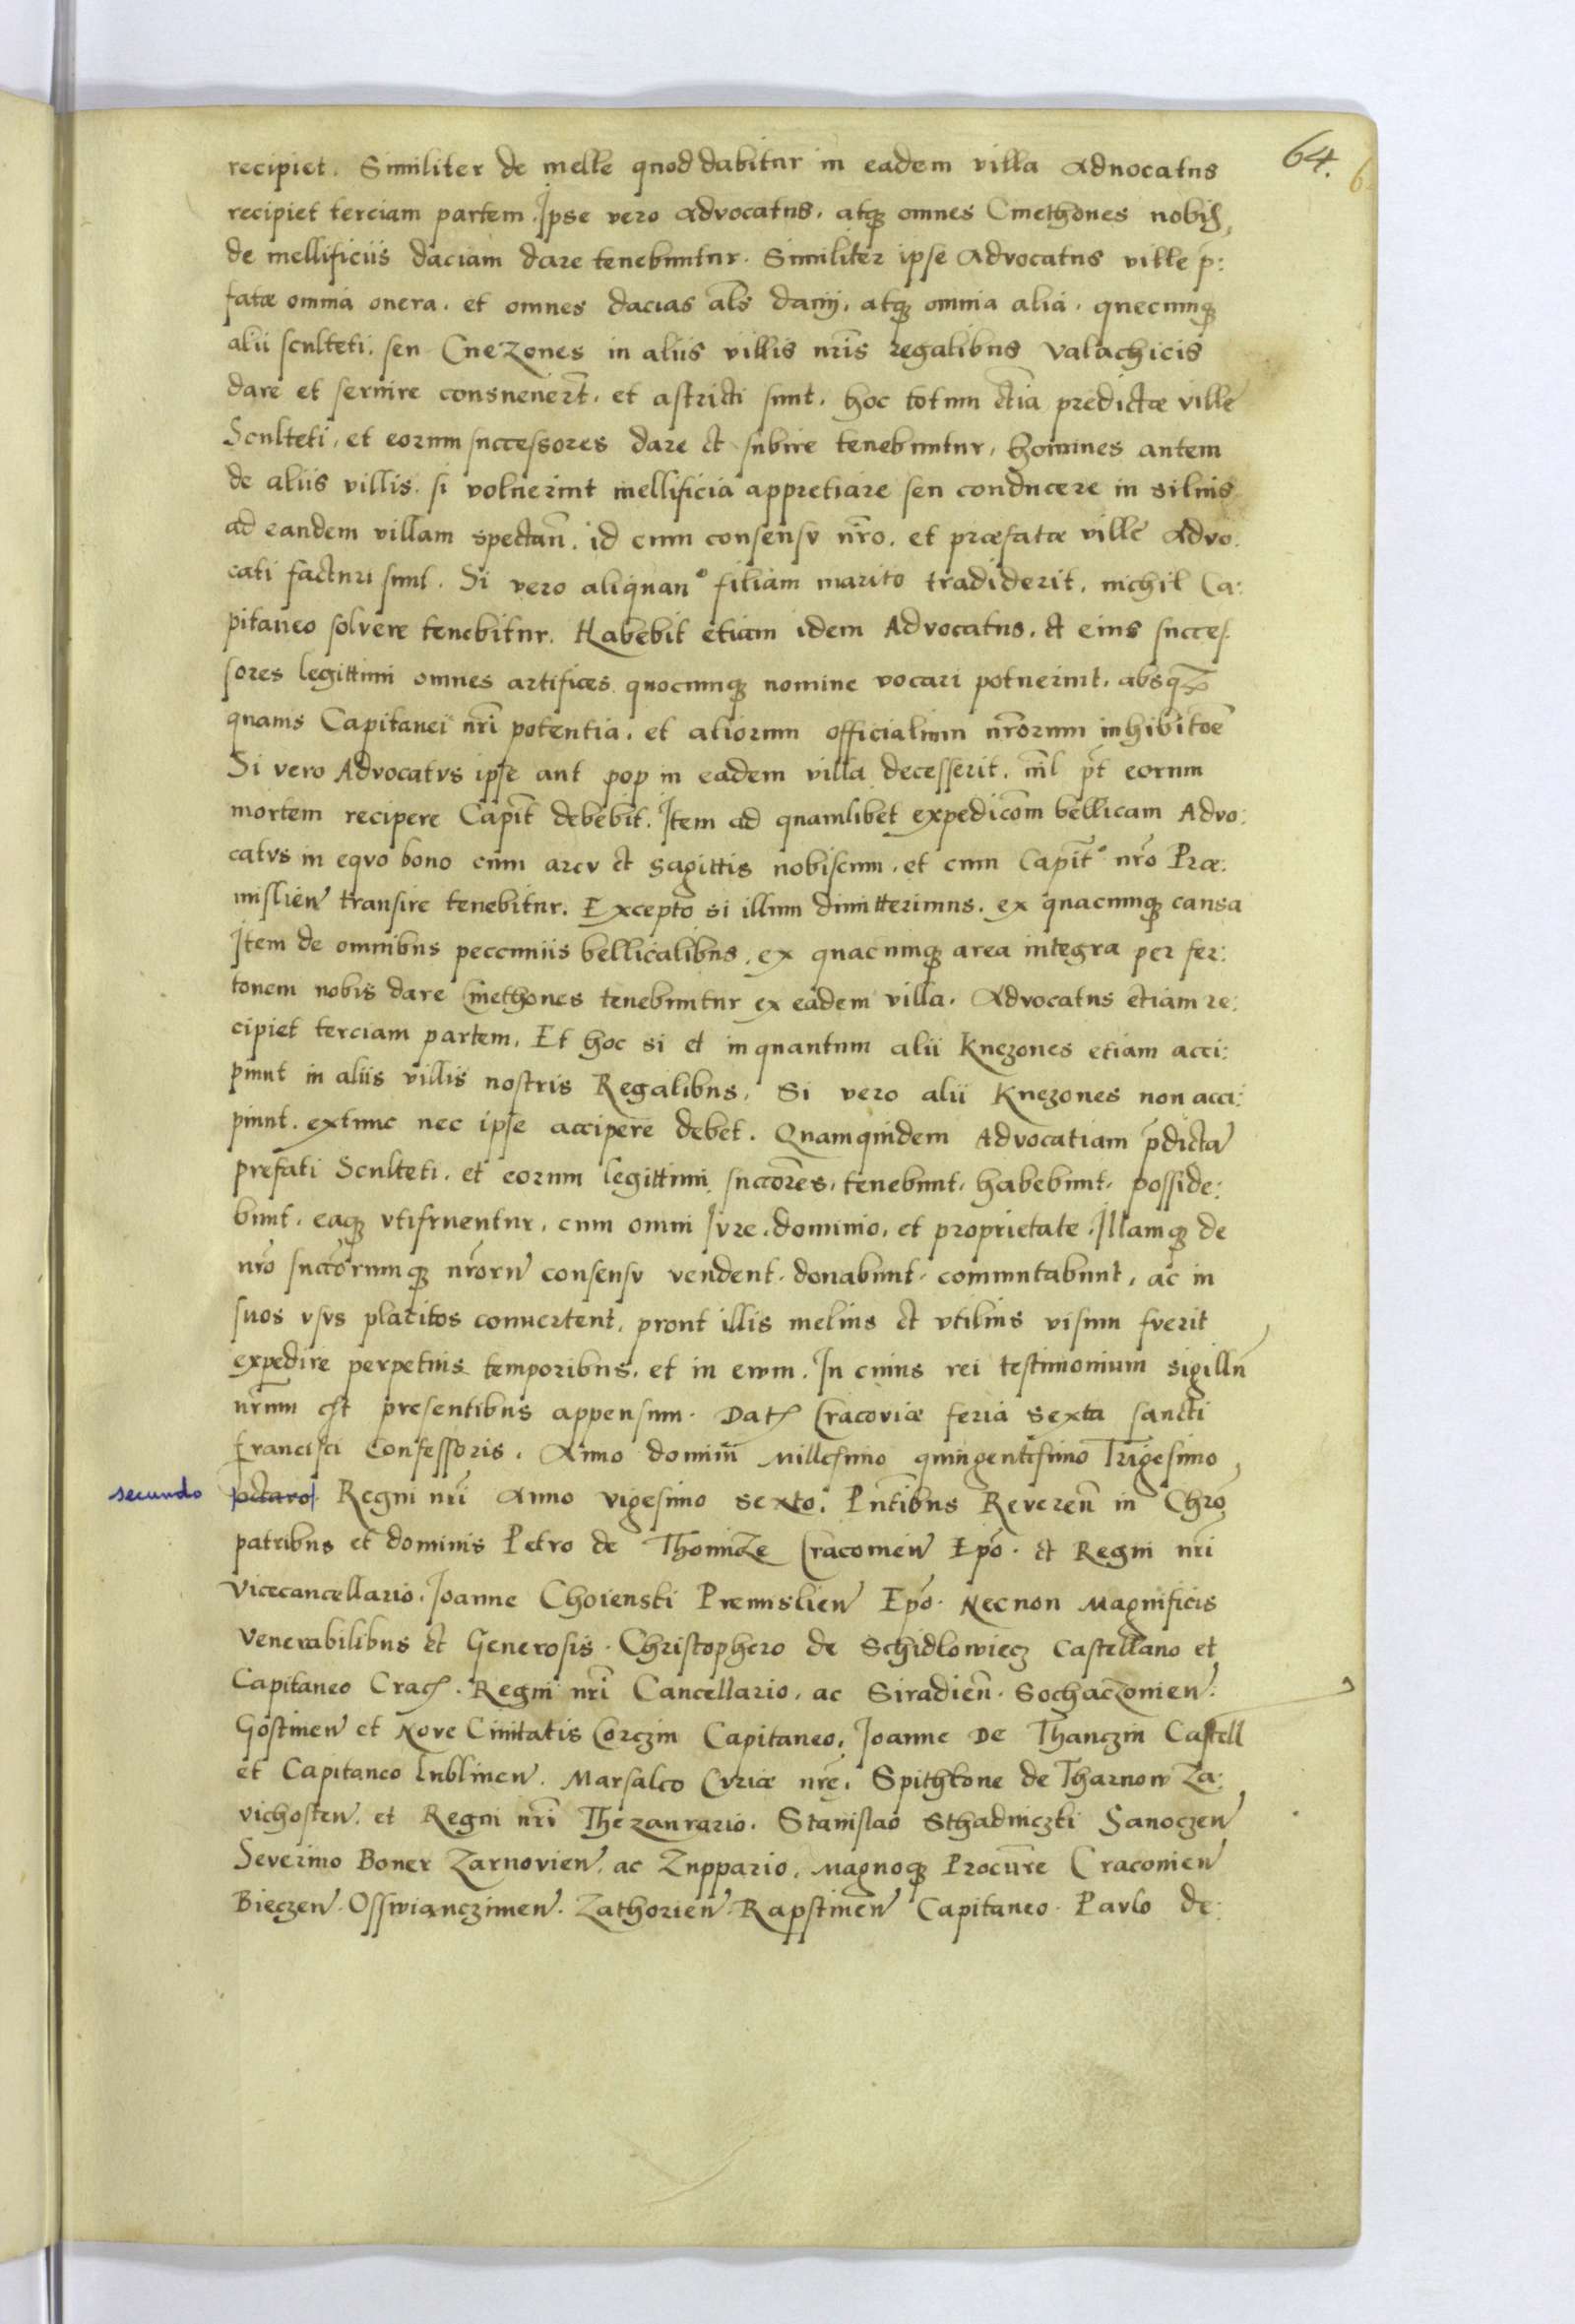 64.
recipiet. Similiter de melle quod dabitur in eadem villa Aduocatus
recipiet terciam partem. Ipse vero Advocatus, atq₃ omnes Cmethones nobis,
de mellificiis daciam dare tenebuntur. Similiter ipse Advocatus ville p̄:
fatæ omnia onera, et omnes dacias al̄s danij, atq₃ omnia alia, quecumq₃
alii sculteti, seu Cnezones in aliis villis nr̄is regalibus Valachicis
dare et seruire consueuer̄t, et astricti sunt, hoc totum et̄ia predictæ ville
Sculteti, et eorum successores dare et subire tenebuntur, homines autem
de aliis villis, si voluerint mellificia appretiare seu conducere in siluis
ad eandem villam spectan̄, id cum consensv nr̄o, et præfatæ ville Advo:
cati facturi sunt. Si vero aliquan filiam marito tradiderit, nichil Ca:
pitaneo solvere tenebitur. Habebit etiam idem Advocatus, et eius succes:
sores legittimi omnes artifices quocumq₃ nomine vocari potuerint, absq₃
quauis Capitanei nr̄i potentia, et aliorum officialium nr̄orum inhibitōe
Si vero Advocatvs ipse aut pop in eadem villa decesserit, nīl p̄t eorum
mortem recipere Capit̄ debebit. Item ad quamlibet expedicōm bellicam Advo:
catvs in eqvo bono cum arcv et sagittis nobiscum, et cum Capit̄ nr̄o Præ:
mislien̄ transire tenebitur. Excepto si illum dimitterimus, ex quacumq₃ causa
Item de omnibus peccuniis bellicalibus, ex quacumq₃ area integra per fer:
tonem nobis dare Cmethones tenebuntur ex eadem villa, Advocatus etiam re:
cipiet terciam partem, Et hoc si et inquantum alii Knezones etiam acci:
piunt in aliis villis nostris Regalibus, Si vero alii Knezones non acci:
piunt, extunc nec ipse accipere debet. Quamquidem Advocatiam p̄dictā
prefati Sculteti, et eorum legittimi succōres, tenebunt, habebunt, posside:
bunt, eaq₃ vtifruentur, cum omni Ivre, dominio, et proprietate, Illamq₃ de
nr̄o succōrumq₃ nr̄orū consensv vendent, donabunt, commutabunt, ac in
svos vsvs placitos conuertent, prout illis melius et vtilius visum fverit
expedire perpetuis temporibus, et in ewm. In cuius rei testimonium sigillū
nr̄um est presentibus appensum. Dat̄ Cracoviæ feria sexta sancti
Francisci Confessoris, Anno domini Millesimo quingentesimo Trigesimo
secundo octavo Regni nr̄i Anno vigesimo sexto, Pn̄tibus Reveren̄ in Chr̄o
patribus et dominis Petro de Thomicze Cracouien̄ Ep̄o. et Regni nr̄i
Vicecancellario, Joanne Choienski Premislien̄ Ep̄o. Necnon Magnificis
Venerabilibus et Generosis. Christophero de Schidlowiecz Castellano et
Capitaneo Crac̄. Regni nr̄i Cancellario, ac Siradien̄. Sochaczouien̄.
Gostinen̄ et Nove Ciuitatis Corczin Capitaneo, Joanne De Thanczin Castell
et Capitaneo Lublinen̄. Marsalco Cvriæ nr̄e, Spithkone de Tharnow Za:
vichosten̄. et Regni nr̄i Thezaurario. Stanislao Sthadniczki Sanoczen̄
Severino Boner Zarnovien̄. ac Zuppario, Magnoq₃ Procur̄re Cracouien̄
Bieczen̄. Osswianczimen̄. Zathorien̄. Rapstinen̄ Capitaneo. Pavlo de: